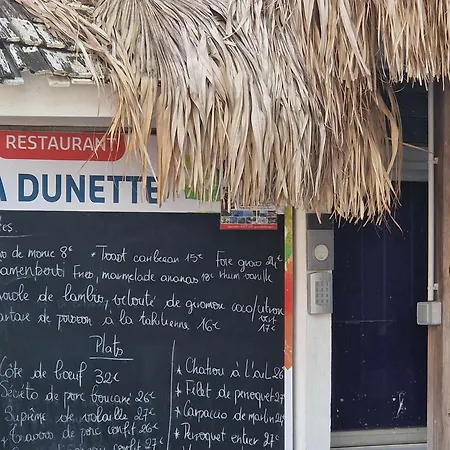 RESTAURANT
A DUNETTE
res.
o de morue 8€ * Toast caribéen 15€ Foie gras 24€
amembert Fries, marmelade ananas 18€ rhum vanille
de lambis, velouté de giromon coco/citron vert
tare de poisson à la tahitienne 16€ 17€
Plats
Côte de boeuf 32€
Secreto de porc boucané 26€
Suprême de volaille 27€
Travers de porc confit 26€
confit 27€
* Chatrou à l'ail 26
* Filet de perroquet 27€
* Carpaccio de marlin 24€
* Perroquet entier 27€